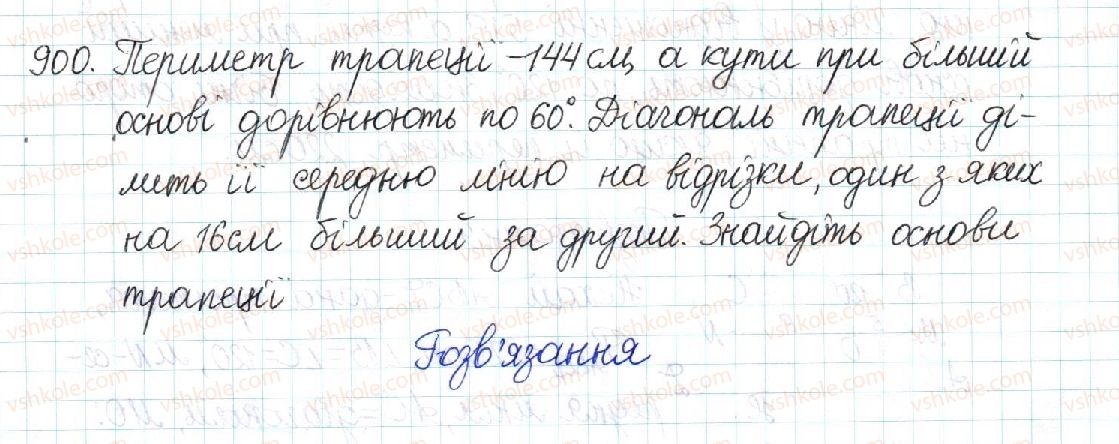 900. Периметр трапеції -144см, а кути при більшій
основі дорівнюють по 60°. Діагональ трапеції ді-
лить її середню лінію на відрізки, один з яких
на 16см більший за другий. Знайдіть основи
трапеції
Розв'язання